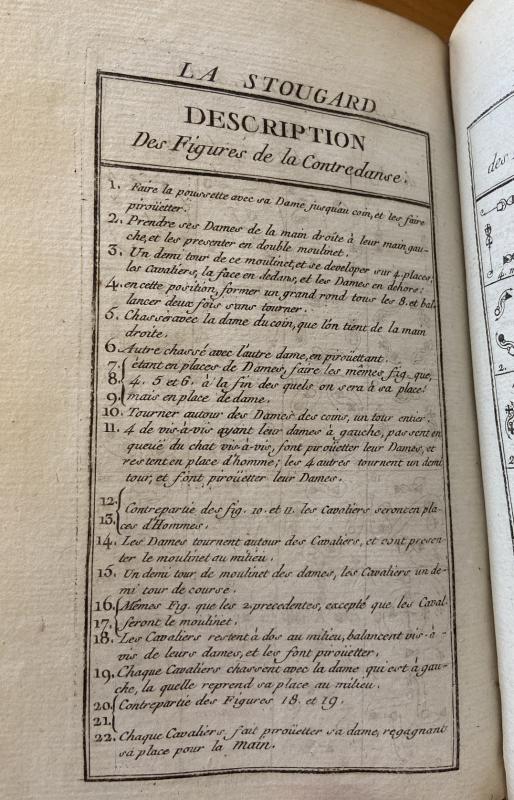 LA STOUGARD
DESCRIPTION
Des Figures de la Contredanse.
1. Faire la poussette avec sa Dame jusqu'au coin, et les faire
piroüetter.
2. Prendre ses Dames de la main droite à leur main gau-
che, et les presenter en double moulinet.
3. Un demi tour de ce moulinet, et se developer sur 4 places;
los Cavaliers, la face en dedans, et les Dames en dehors;
4. en cette position, former un grand rond tous les 8. et bal-
lancer deux fois sans tourner.
5. Chassé avec la dame du coin, que l'on tient de la main
droite.
6. Autre chassé avec l'autre dame, en piroüettant.
7. étant en places de Dames, faire les mêmes fig. que,
8. 4. 5 et 6. à la fin des quels on sera à sa place!
9. mais en place de dame.
10. Tourner autour des Dames des coins, un tour entier.
11. 4 de vis-à-vis ayant leur dames à gauche, passent en
queuë du chat vis-à-vis, font piroüetter leur Dames, et
restent en place d'homme; les 4 autres tournent un demi
tour, et font piroüetter leur Dames.
12.
Contrepartie des fig. 10. et 11. les Cavaliers seront en pla-
13. ces d'Hommes.
14. Les Dames tournent autour des Cavaliers, et vont presen-
ter le moulinet au milieu.
15. Un demi tour de moulinet des dames, les Cavaliers un de-
mi tour de course.
16. Mêmes Fig. que les 2. precedentes, excepté que les Caval.
17. feront le moulinet.
18. Les Cavaliers restent à dos au milieu, balancent vis-à-
vis de leurs dames, et les font piroüetter.
19. Chaque Cavaliers chassent avec la dame qui est à gau-
che, la quelle reprend sa place au milieu.
20. Contrepartie des Figures 18. et 19.
21.
22. Chaque Cavaliers, fait piroüetter sa dame, regagnant
sa place pour la main.
des
4.
2.